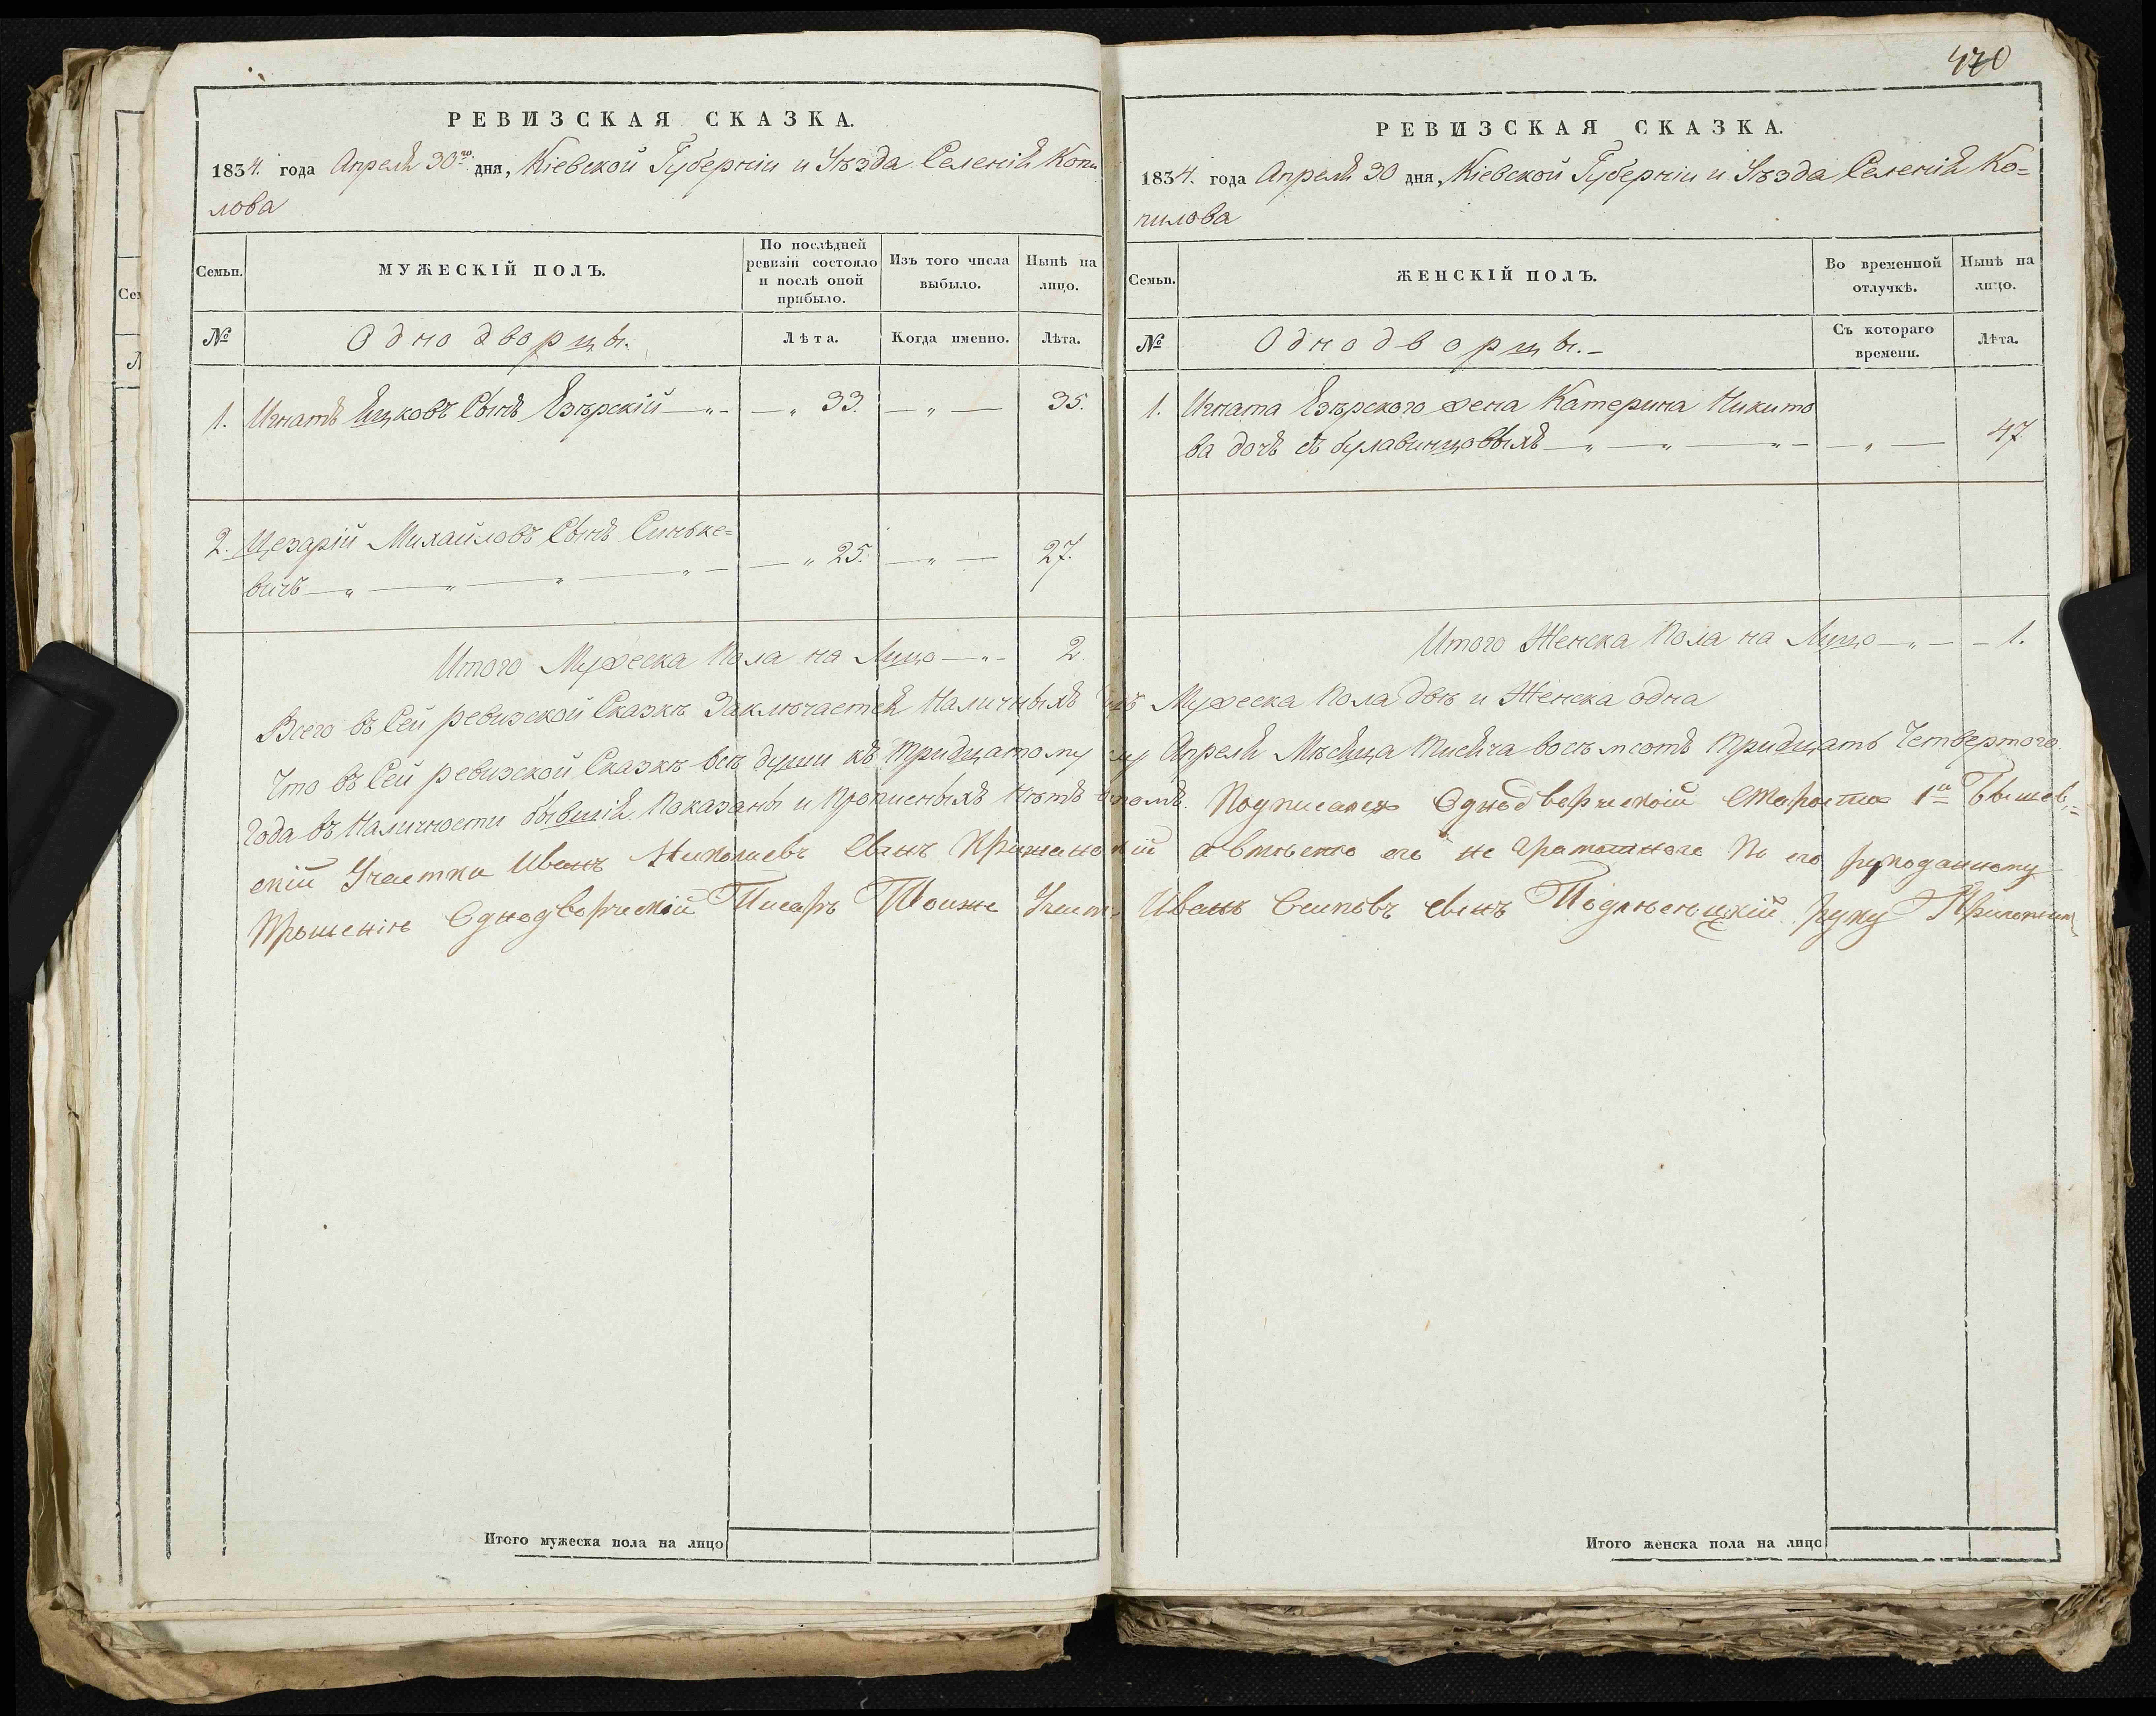 РЕВИЗСКАЯ СКАЗКА.
1834. года Апреля 30го дня, Кіевской Губерніи и Уѣзда Селенія Копи
лова
Семьи.
МУЖЕСКІЙ ПОЛЪ.
По послѣдней ревизіи состояло и послѣ оной прибыло.
Изъ того числа выбыло.
Нынѣ на лицо.
№
Однодворцы.
Лѣта.
Когда именно.
Лѣта.
1. Игнатъ Яцковъ Сынъ Езѣрскій — „ — — „ 33. — „ — 35.
2. Цезарій Михайловъ Сынъ Синьке=
вичъ — „ — „ — „ — „ — — „ 25. — „ — 27.
Итого Мужеска Пола на Лицо — „ — 2.
470
РЕВИЗСКАЯ СКАЗКА.
1834. года Апреля 30 дня, Кіевской Губерніи и Уѣзда Селенія Ко=
пилова
Семьи.
ЖЕНСКІЙ ПОЛЪ.
Во временной отлучкѣ.
Нынѣ на лицо.
№
Однодворцы. —
Съ котораго времени.
Лѣта.
1. Игната Езѣрского жена Катерина Никито
ва дочь съ булавинцовыхъ — „ — „ „ — — „ — 47.
Итого Женска Пола на Лицо — „ — — 1.
Всего въ Сей ревизской Сказкѣ Заключается Наличныхъ Мужеска Пола двѣ и Женска одна
Что въ Сей ревизской Сказкѣ всѣ души къ Тридцатому Апреля Мѣсяца Тысяча восемсотъ Тридцать Четвертого.
Года въ Наличности бывшія Показаны и Прописныхъ Нѣтъ Подписался Однодворческій Староста 1й Бышев=
скій Участка Иванъ Николаевъ Сынъ а вмѣсто его не Грамотного По его рукоданному
Прошенію Однодворческій Писарь Тоиже Участ. Иванъ Осиповъ Сынъ руку Приложил
Итого мужеска пола на лицо
Итого женска пола на лицо